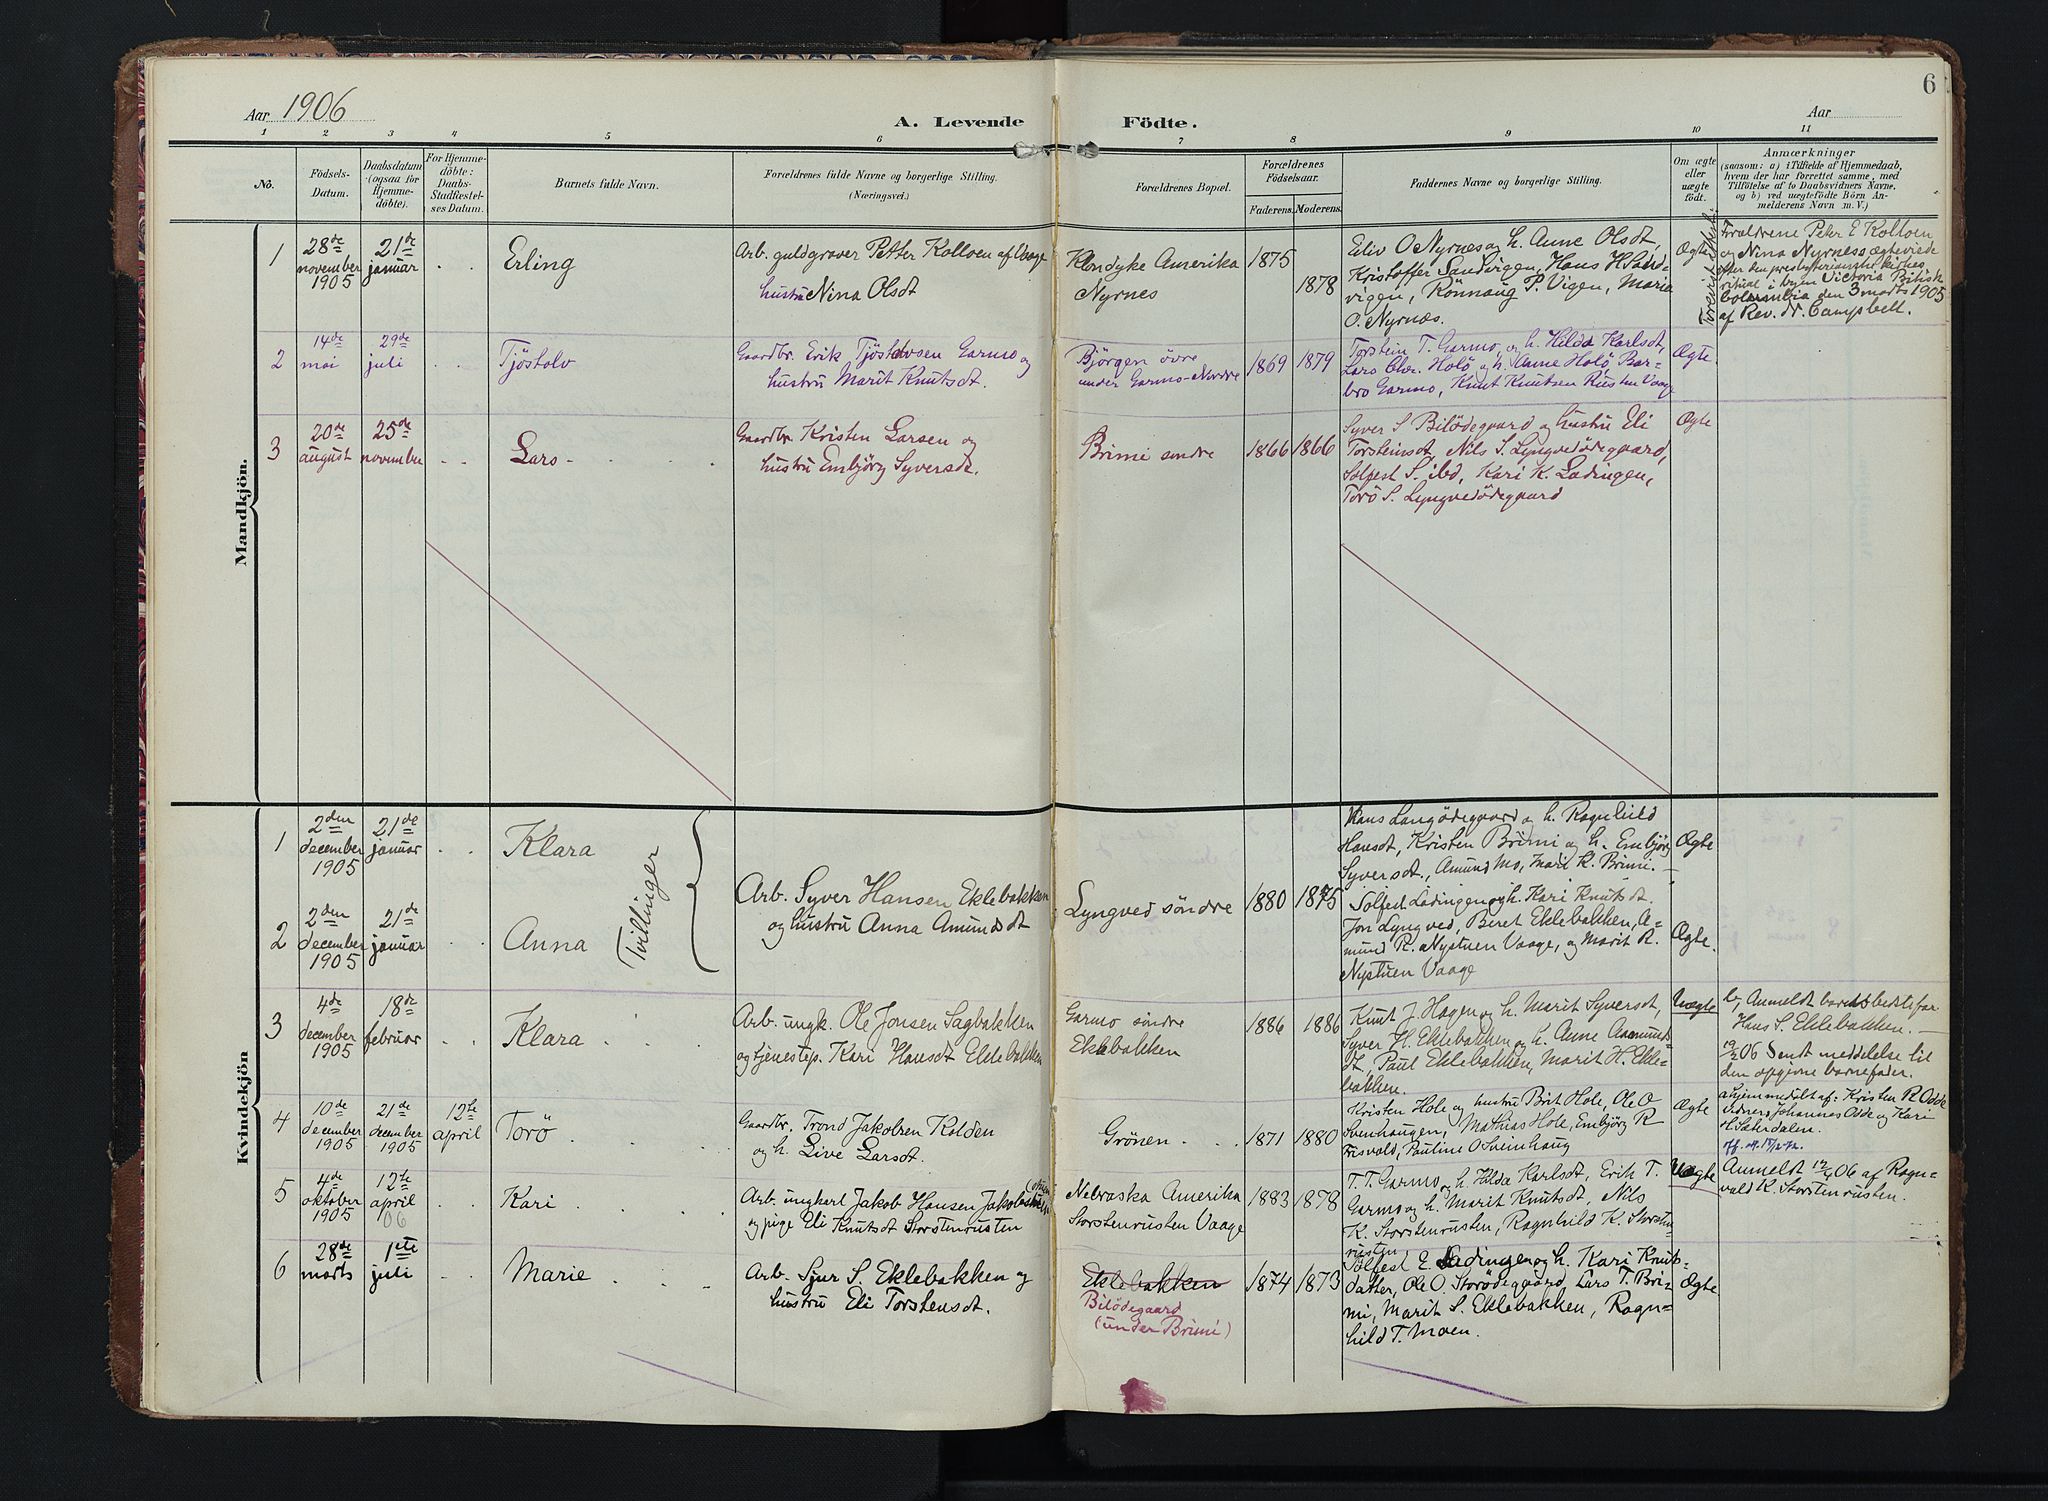 Aar 1906
A. Levende Födte.
Aar
6
1 2 3 4 5 6 7 8 9 10 11
No.
Födsels-
Datum.
Daabsdatum
(ogsaa for
Hjemme-
döbte).
For Hjemme-
döbte:
Daabs-
Stadfæstel-
ses Datum.
Barnets fulde Navn.
Forældrenes fulde Navne og borgerlige Stilling.
(Næringsvei.)
Forældrenes Bopæl.
Forældrenes
Födselsaar.
Faderens. Moderens.
Faddernes Navne og borgerlige Stilling.
Om ægte
eller
uægte
födt.
Anmærkninger
(saasom: a) i Tilfælde af Hjemmedaab,
hvem der har forrettet samme, med
Tilföielse af to Daabsvidners Navne,
og b) ved uægtefödte Börn An-
melderens Navn m. V.)
Mandkjön.
1
28de
november
1905
21de
januar
Erling
Arb. guldgraver Petter Kolloen af Vaage
hustru Nina Olsdt
Klondyke Amerika
Nyrnes
1875
1878
Eliv O Nyrnes og h. Anne Olsdt,
Kristoffer Sandvigen, Hans H Sand-
vigen, Rönnaug P. Vigen, Maria
O. Nyrnæs.
Ægte
Forældrene Peter E Kolloen
og Nina Nyrness ægteviede
efter den presbyterianske kirkes
ritual i byen Victoria Britisk
Columbia den 3 marts 1905
af Rev. W. Campbell.
2
14de
mai
29de
juli
Tjöstolv
Gaardbr. Erik Tjöstolvsen Garmo og
hustru Marit Knutsdt.
Björgen övre
under Garmo-Nordre
1869
1879
Torstein T. Garmo, og h. Hilda Karlsdt,
Lars Chr. Holö og h. Anne Holö Bar-
bro Garmo, Knut Knutsen Rusten Vaage
Ægte.
3
20de
august
25de
november
Lars
Gaardbr. Kristen Larsen og
hustru Embjörg Syversdt.
Brimi söndre
1866
1866
Syver S Bilödegaard og hustru Eli
Torsteinsdt, Nils S. Lyngvedödegaard,
Solfest S. ibd, Kari K. Ladingen,
Torö S. Lyngvedödegaard
Ægte
Kvindekjön
1
2den
december
1905
21de
januar
Klara
Tvillinger
Arb. Syver Hansen Eklebakken
og hustru Anna Amundsdt
Lyngved söndre
1880
1875
Hans Langödegaard og h. Ragnhild
Hansdt, Kristen Brimi og h. Embjörg
Syversdt, Amund Mo, Marit K. Brimi.
Ægte
2
2den
december
1905
21de
januar
Anna
Solfest Ladingen og h. Kari Knutsdt.
Jon Lyngved, Beret Eklebakken, A-
mund R. Nystuen Vaage, og Marit R.
Nystuen Vaage
Ægte.
3
4de
december
1905
18de
februar
Klara
Arb. ungk. Ole Jonsen Sagbakken
og tjenestep. Kari Hansdt Eklebakken
Garmo söndre
Eklebakken
1886
1886
Knut J. Hagen og h. Marit Syversdt,
Syver H. Eklebakken og h. Anne Aamunds-
dt, Paul Eklebakken, Marit H. Ekle-
bakken.
Uægte
b, Anmeldt barnets bedstefar
Hans S. Eklebakken.
19/2 06 Sendt meddelelse til
den opgivne barnefader.
4
10de
december
1905
21de
december
1905
12te
april
Torö
Gaardbr. Trond Jakobsen Kolden
og h. Live Larsdt.
Grönen
1871
1880
Kristen Hole og hustru Brit Hole, Ole O
Sveinhaugen, Mathias Hole, Embjörg R
Frisvold, Pauline O Sveinhaug
Ægte
a hjemmedöbt af: Kristen R. Odde
Vidner: Johannes Odde og Kari
H. Sæterdalen.
5
4de
oktober
1905
12te
april
06
Kari
Arb. ungkarl Jakob Hansen
og pige Eli Knutsdt Storstenrusten
Nebraska Amerika
Storstenrusten Vaage
1883
1878
T. T. Garmo og h. Hilda Karlsdt, Erik T.
Garmo og h. Marit Knutsdt, Nils
K. Storstenrusten, Ragnhild K. Storsten
rusten
Uægte
Anmeldt 12/4 06 af Ragn-
vald K. Storstenrusten.
6
28de
marts
1ste
juli
Marie
Arb. Sjur S. Eklebakken og
hustru Eli Torstensdt.
Eklebakken
Bilödegaard
(under Brimi)
1874
1873
Solfest E. Ladingen og h. Kari Knuts-
datter, Ole O. Storödegaard, Lars T. Bri-
mi, Marit S. Eklebakken, Ragn-
hild T. Moen.
Ægte